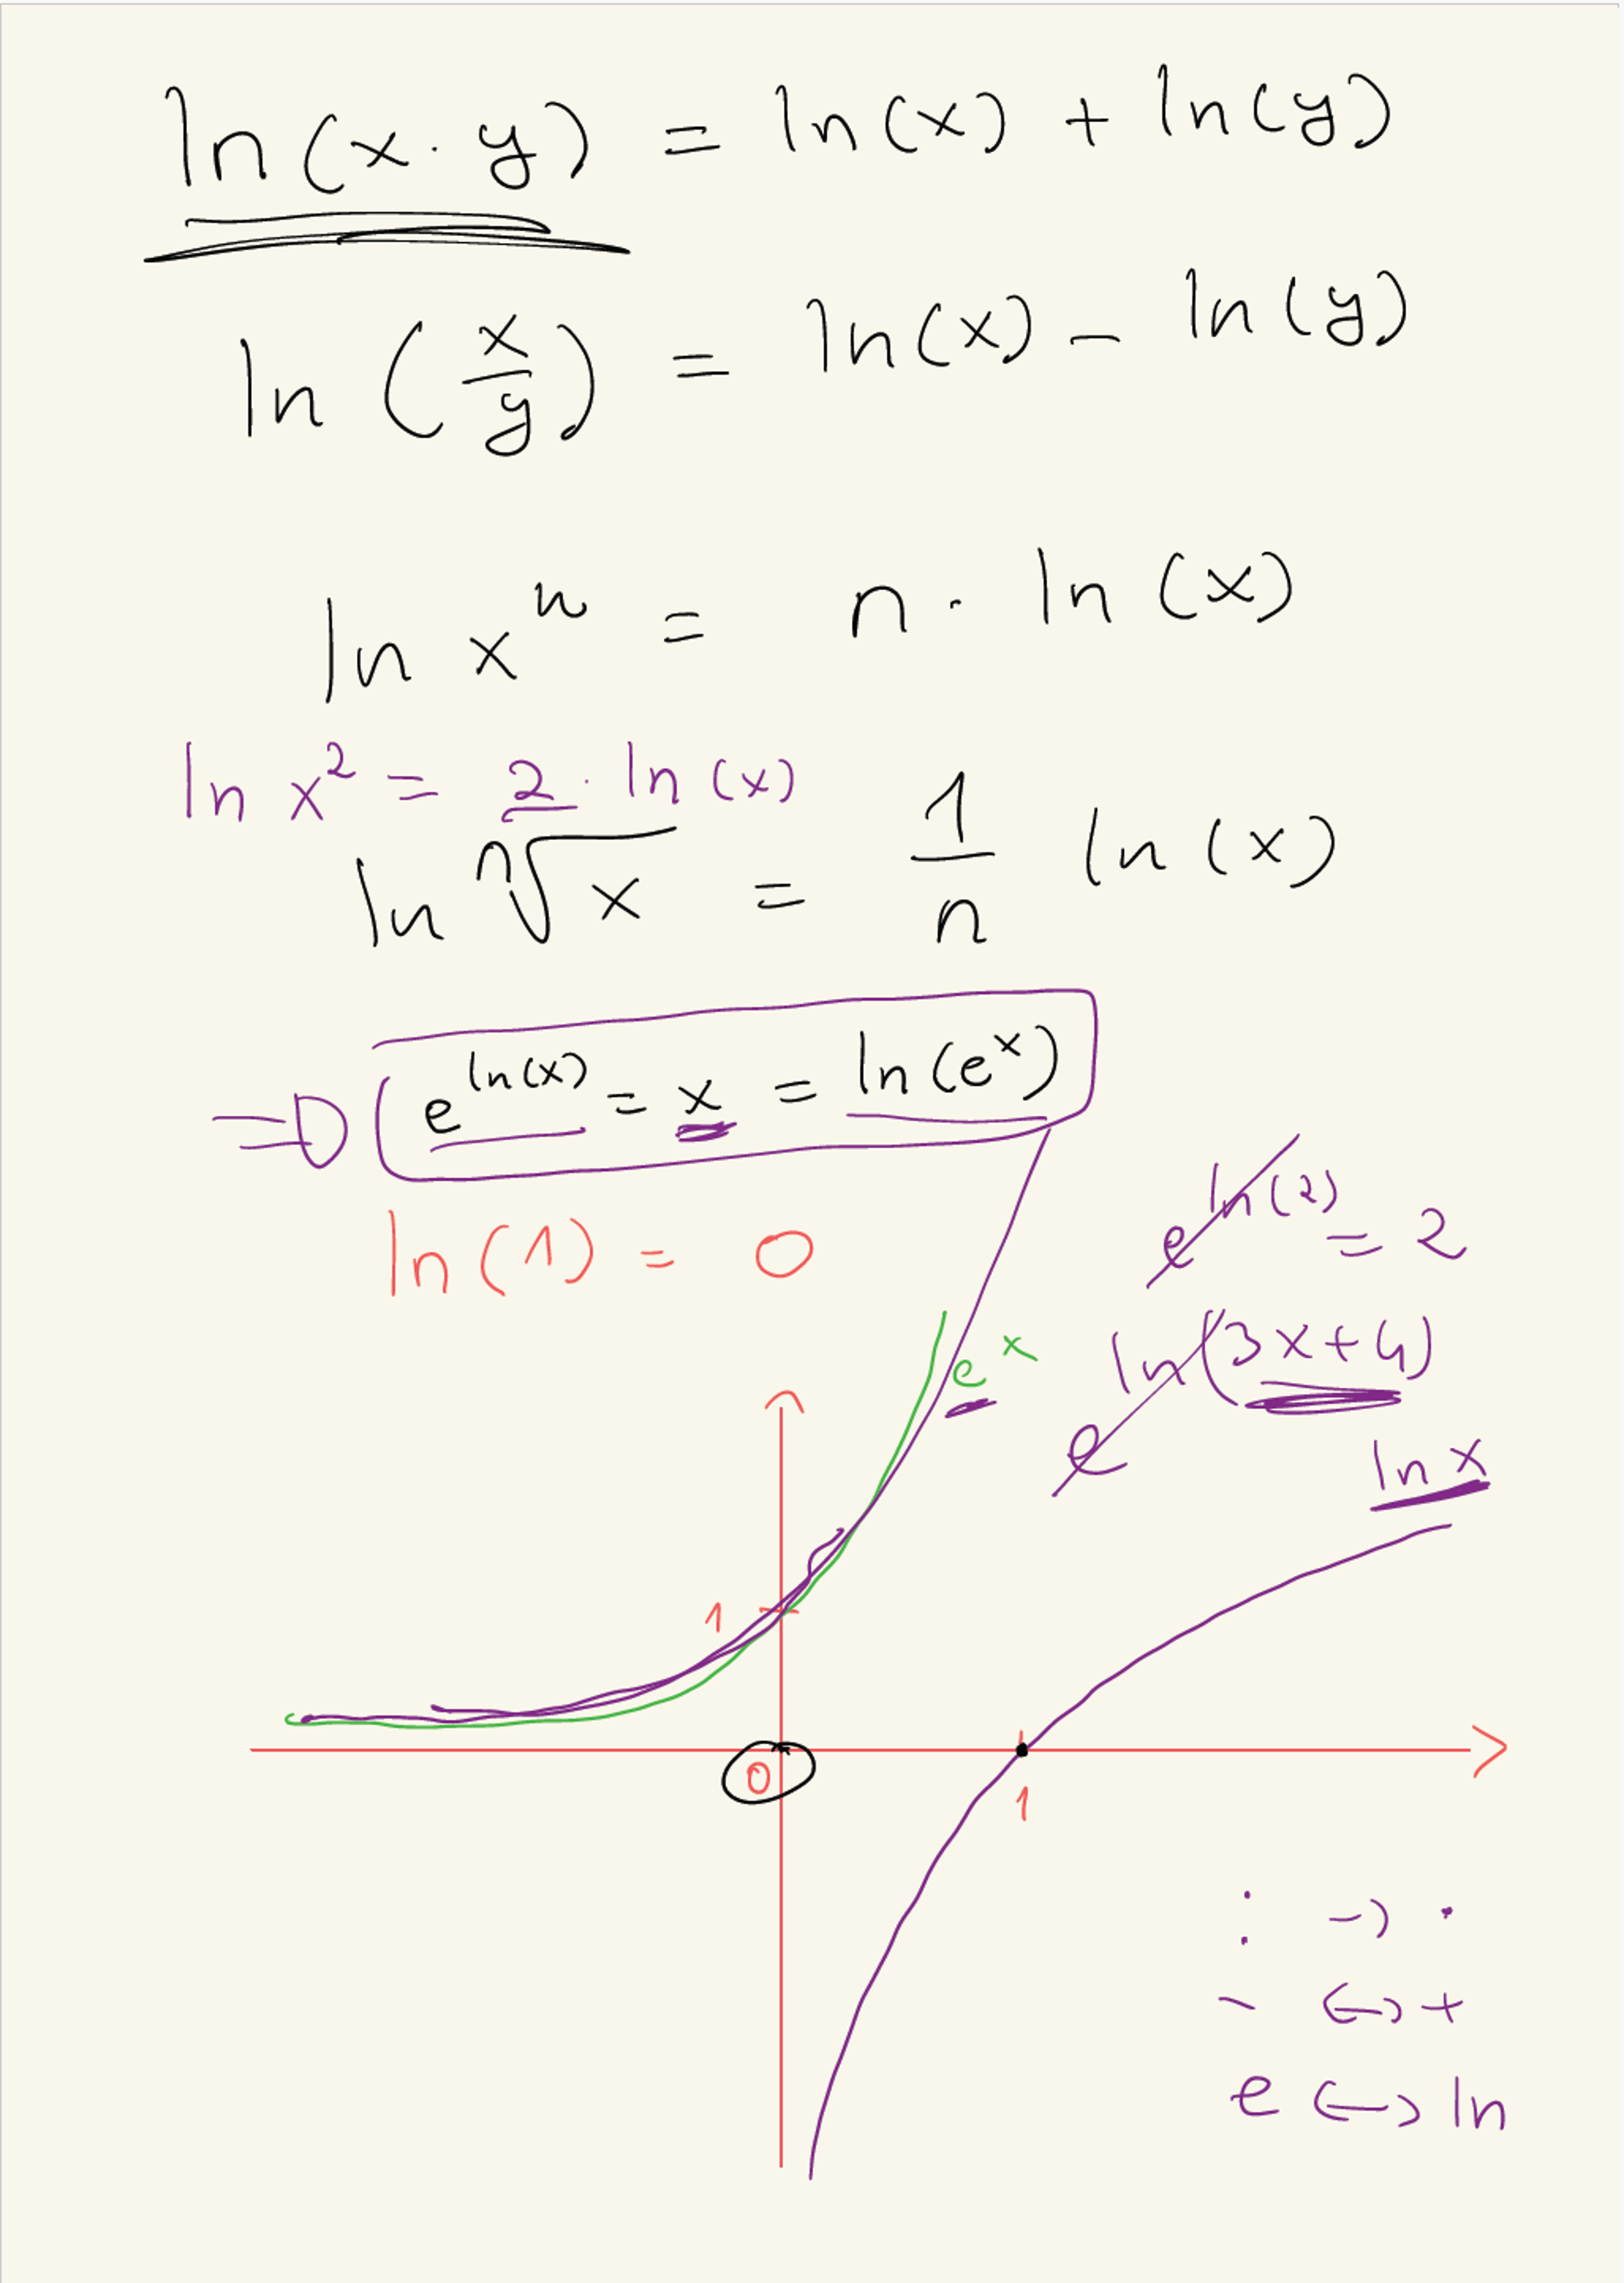 ln(x · y) = ln(x) + ln(y)
ln(x/y) = ln(x) - ln(y)
ln xⁿ = n · ln(x)
ln x² = 2 · ln(x)
ln ⁿ√x = 1/n ln(x)
⇒ e^ln(x) = x = ln(e^x)
ln(1) = 0
e^ln(2) = 2
e^ln(3x+4)
e^x
ln x
1
0
1
: → ·
- ↔ +
e ↔ ln